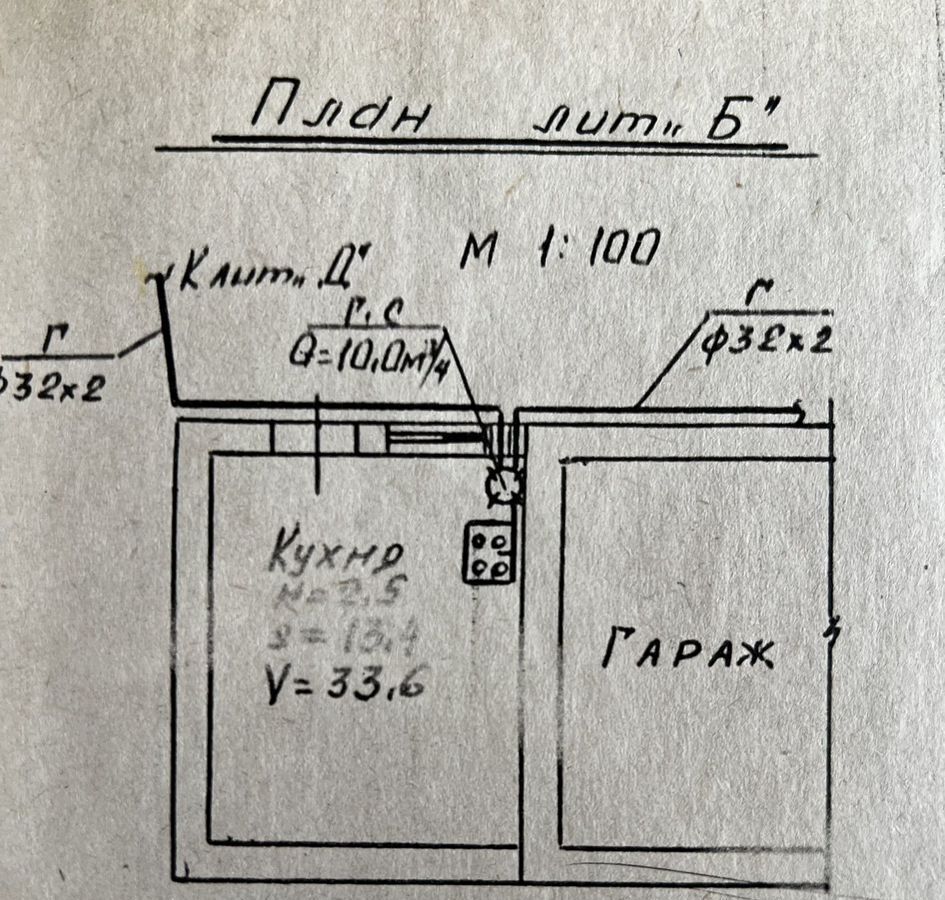 План лит„Б"
М 1:100
К лит„Д"
Г.С
Q=10,0м³/ч
Г
ф32х2
Г
ф32х2
Кухня
H=2.5
S=13.4
V=33.6
ГАРАЖ